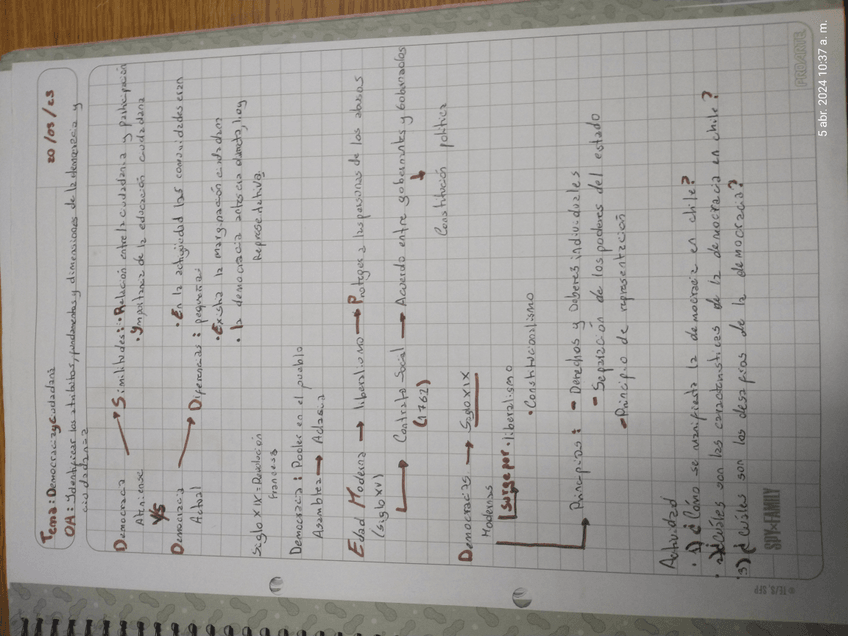 20/03/23
Tema: Democracia y ciudadanía
OA: Identificar los atributos, fundamentos y dimensiones de la democracia y
ciudadanía
Democracia → Similitudes: • Relación entre la ciudadanía y participación
Ateniense • Ymportancia de la educación ciudadana
VS
Democracia → Diferencias: • En la antigüedad las comunidades eran
Actual pequeñas
• Existía la marginación ciudadana
• la democracia antes era directa, hoy
representativa
Siglo XIX: Revolución
francesa
Democracia: Poder en el pueblo
Asamblea →
Edad Moderna → liberalismo → Proteger a las personas de los abusos
(siglo XV)
→ Contrato Social → Acuerdo entre gobernantes y gobernados
(1762) ↓
Constitución política
Democracias → Siglo XIX
Modernas
Surge por: • liberalismo
• Constitucionalismo
→ Principios: - Derechos y Deberes individuales
- Separación de los poderes del estado
- Principio de representación
Actividad
• 1) ¿Cómo se manifiesta la democracia en chile?
• 2) ¿Cuáles son las características de la democracia en chile?
• 3) ¿Cuáles son los desafíos de la democracia?
SPY×FAMILY
PROARTE
5 abr. 2024 10:37 a. m.